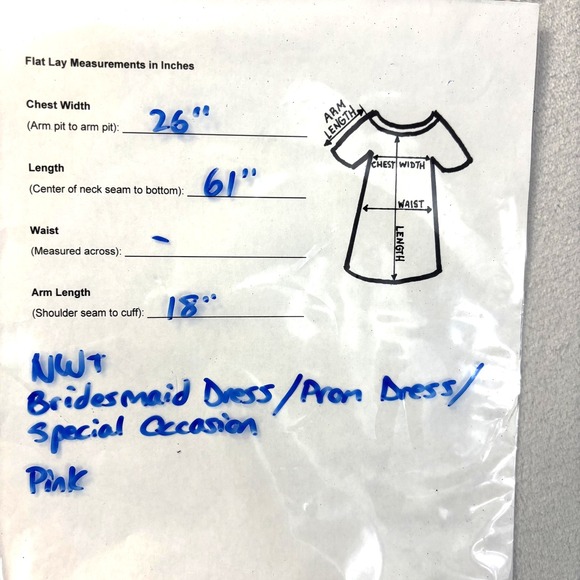 Flat Lay Measurements in Inches
Chest Width
(Arm pit to arm pit): 26"
Length
(Center of neck seam to bottom): 61"
Waist
(Measured across): -
Arm Length
(Shoulder seam to cuff): 18"
ARM
LENGTH
CHEST WIDTH
WAIST
LENGTH
NWT
Bridesmaid Dress/Prom Dress/
Special Occasion
Pink